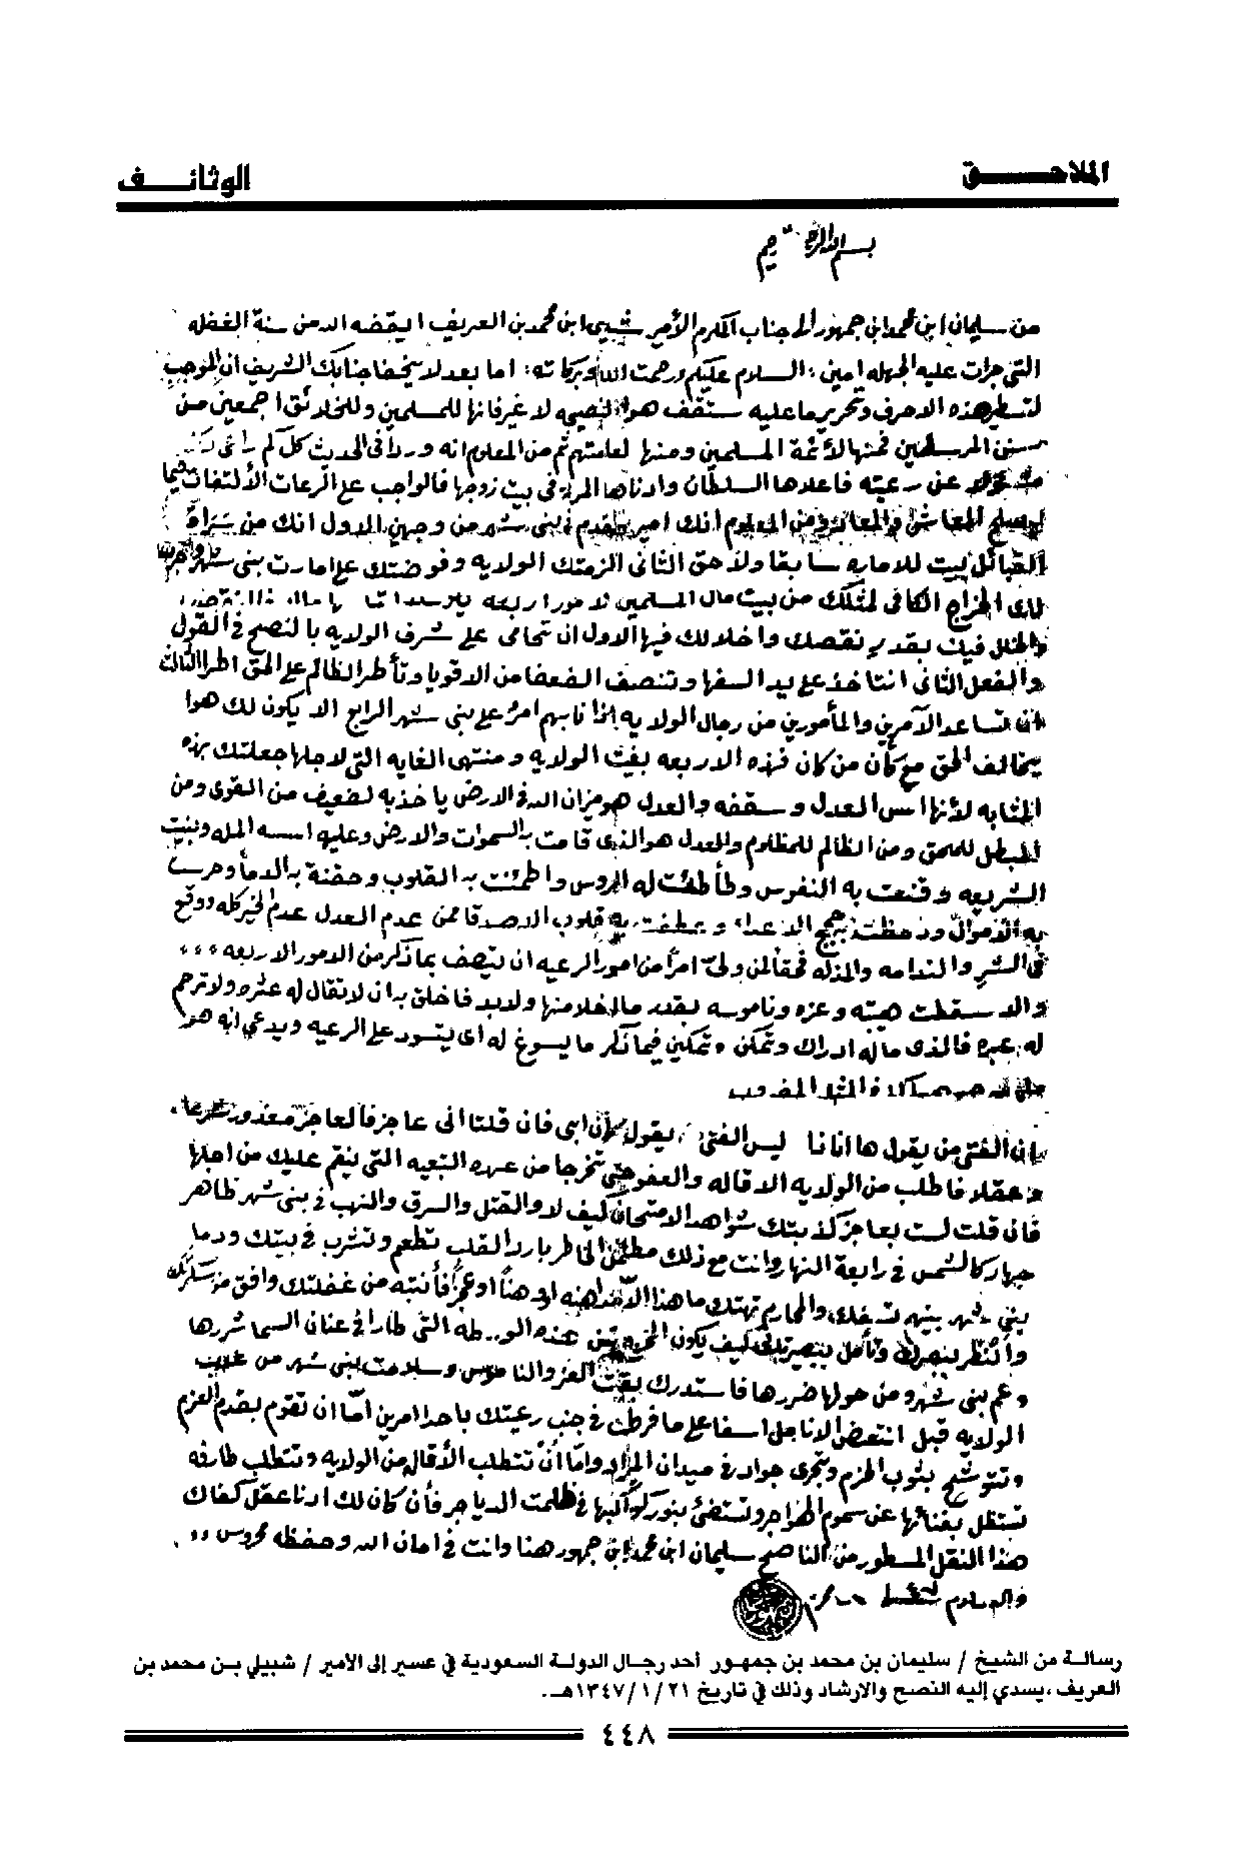 الملاحــــق
الوثائــــف
بسم الله الرحمن الرحيم
من سليمان ابن محمد ابن جمهور الى جناب المكرم الأمير شبيلي ابن محمد بن العريف ايقضه الله من سنة الغفله
التي جرات عليه الجهله امين : السلام عليكم ورحمت الله وبركاته : اما بعد لا يخفا جنابك الشريف ان الموجب
لتسطير هذه الاحرف وتحرير ما عليه ستقف هو النصيحه لا غير فانها للمسلمين وللخلائق اجمعين من
سنن المرسلين فمنها لأئمة المسلمين ومنها لعامتهم ثم من المعلوم انه ورد في الحديث كلكم راعي
عن رعيته فاعلاها السلطان وادناها المراه في بيت زوجها فالواجب على الرعات الألتفات فيما
يصلح المعاش والمعاد ومن المعلوم انك امير مقدم في بني شهر من وجهين الاول انك من
القبائل بيت للاماره سابقا ولاحق الثاني الزمتك الولايه وفوضتك على امارت بني شهر
الخراج الكافي لمثلك من بيت مال المسلمين لامور اربعه
فيك بقدر نقصك واخلالك فيها الاول ان تحامى على شرف الولايه بالنصح في القول
والفعل الثاني انتاخذ على يد السفها وتنصف الضعفا من الاقويا وتأطر الظالم على الحق اطرا الثالث
ان تساعد الآمرين والمأمورين من رجال الولايه إذا نابهم امرٌ على بني شهر الرابع الا يكون لك هوا
يخالف الحق مع كان من كان فهذه الاربعه بغيت الولايه ومنتهى الغايه التي لاجلها جعلتك بهذه
المثابه لأنها اس العدل وسقفه والعدل هو ميزان الله في الارض ياخذبه لضعيف من القوى ومن
المبطل للمحق ومن الظالم للمظلوم والعدل هو الذي قامت به السموات والارض وعليه اسسه المله وبنيت
الشريعه وقنعت به النفوس وطأطئت له الروس واطمئنت به القلوب وحقنة به الدمأ وحرست
به الاموال ودحظت حجج الاعداء وعطفت به قلوب الاصدقا فمن عدم العدل عدم الخير كله ووقع
في الشر والندامه والمذله فحقا لمن ولي امراً من امور الرعيه ان يتصف بما ذكر من الامور الاربعه
والا سقطت هيبته وعزه وناموسه بقدر ما اخلا منها ولابد فاخلق به ان لا تقال له عثره ولا ترحم
له عبره فالذي ماله ادراك وتمكن وتمكين فيما ذكر ما يسوغ له اي يتسود على الرعيه ويدعي انه هو
المثل المضروب
إن الفتى من يقول ها انا ذا ليس الفتى من يقول كان ابي فان قلت اني عاجز فالعاجز معذور شرعا
وعقلا فاطلب من الولايه الاقاله والعفو حتى تخرجا من عهده التبعيه التي ينقم عليك من اجلها
فان قلت لست بعاجز كذبتك شواهد الامتحان كيف لا والقتل والسرق والنهب في بني شهر ظاهر
جهار كالشمس في رابعة النهار وانت مع ذلك مطمئن الخاطر بارد القلب تطعم وتشرب في بيتك ودما
بني شهر بينهم تسفك والمحارم تهتك ما هذا الا مداهنه او هناً او عجزاً فأنتبه من غفلتك وافق من سكرتك
وأنظر ببصرك وتأمل ببصيرتك كيف يكون المخرج من هذه الورطه التي طار في عنان السما شررها
وعم بني شهر ومن حولها ضررها فاستدرك بقيت العز والناموس وسلامت بني شهر من
الولايه قبل انتعض الانامل اسفا على ما فرطت في جنب رعيتك باحد امرين امّا ان تقوم بقدم العزم
وتتوشح بثوب الحزم وتجري جواد في ميدان المراد وامّا أن تتطلب الأقاله من الولايه وتتطلب ظارفه
تستظل بفنائها عن سموم الهواجر وتستضئ بنور كواكبها في ظلمت الدياجر فأن كان لك ادنا عقل كفاك
هذا النقل المسطور من الناصح سليمان ابن محمد ابن جمهور هنا وانت في امان الله وحفظه محروس
والسلام
رسالـة من الشيخ / سليمان بن محمد بن جمهـور أحد رجـال الدولـة السعودية في عسير إلى الأمير / شبيلي بـن محمد بن
العريف ،يسدي إليه النصح والارشاد وذلك في تاريخ ١٣٤٧/١/٢١هـ.
٤٤٨